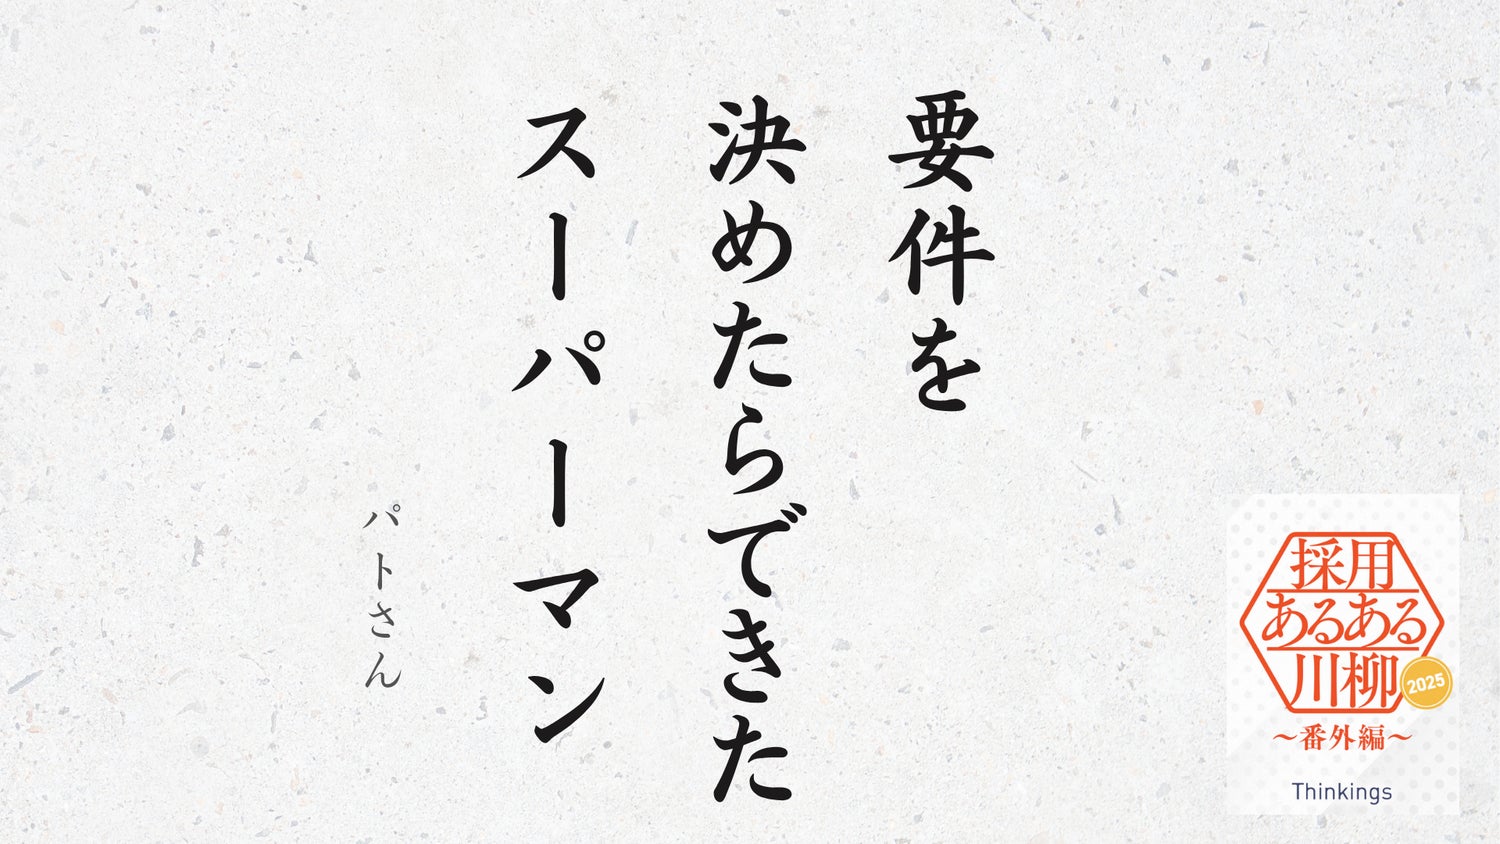 要件を
決めたらできた
スーパーマン
パトさん
採用
あるある
川柳
2025
〜番外編〜
Thinkings